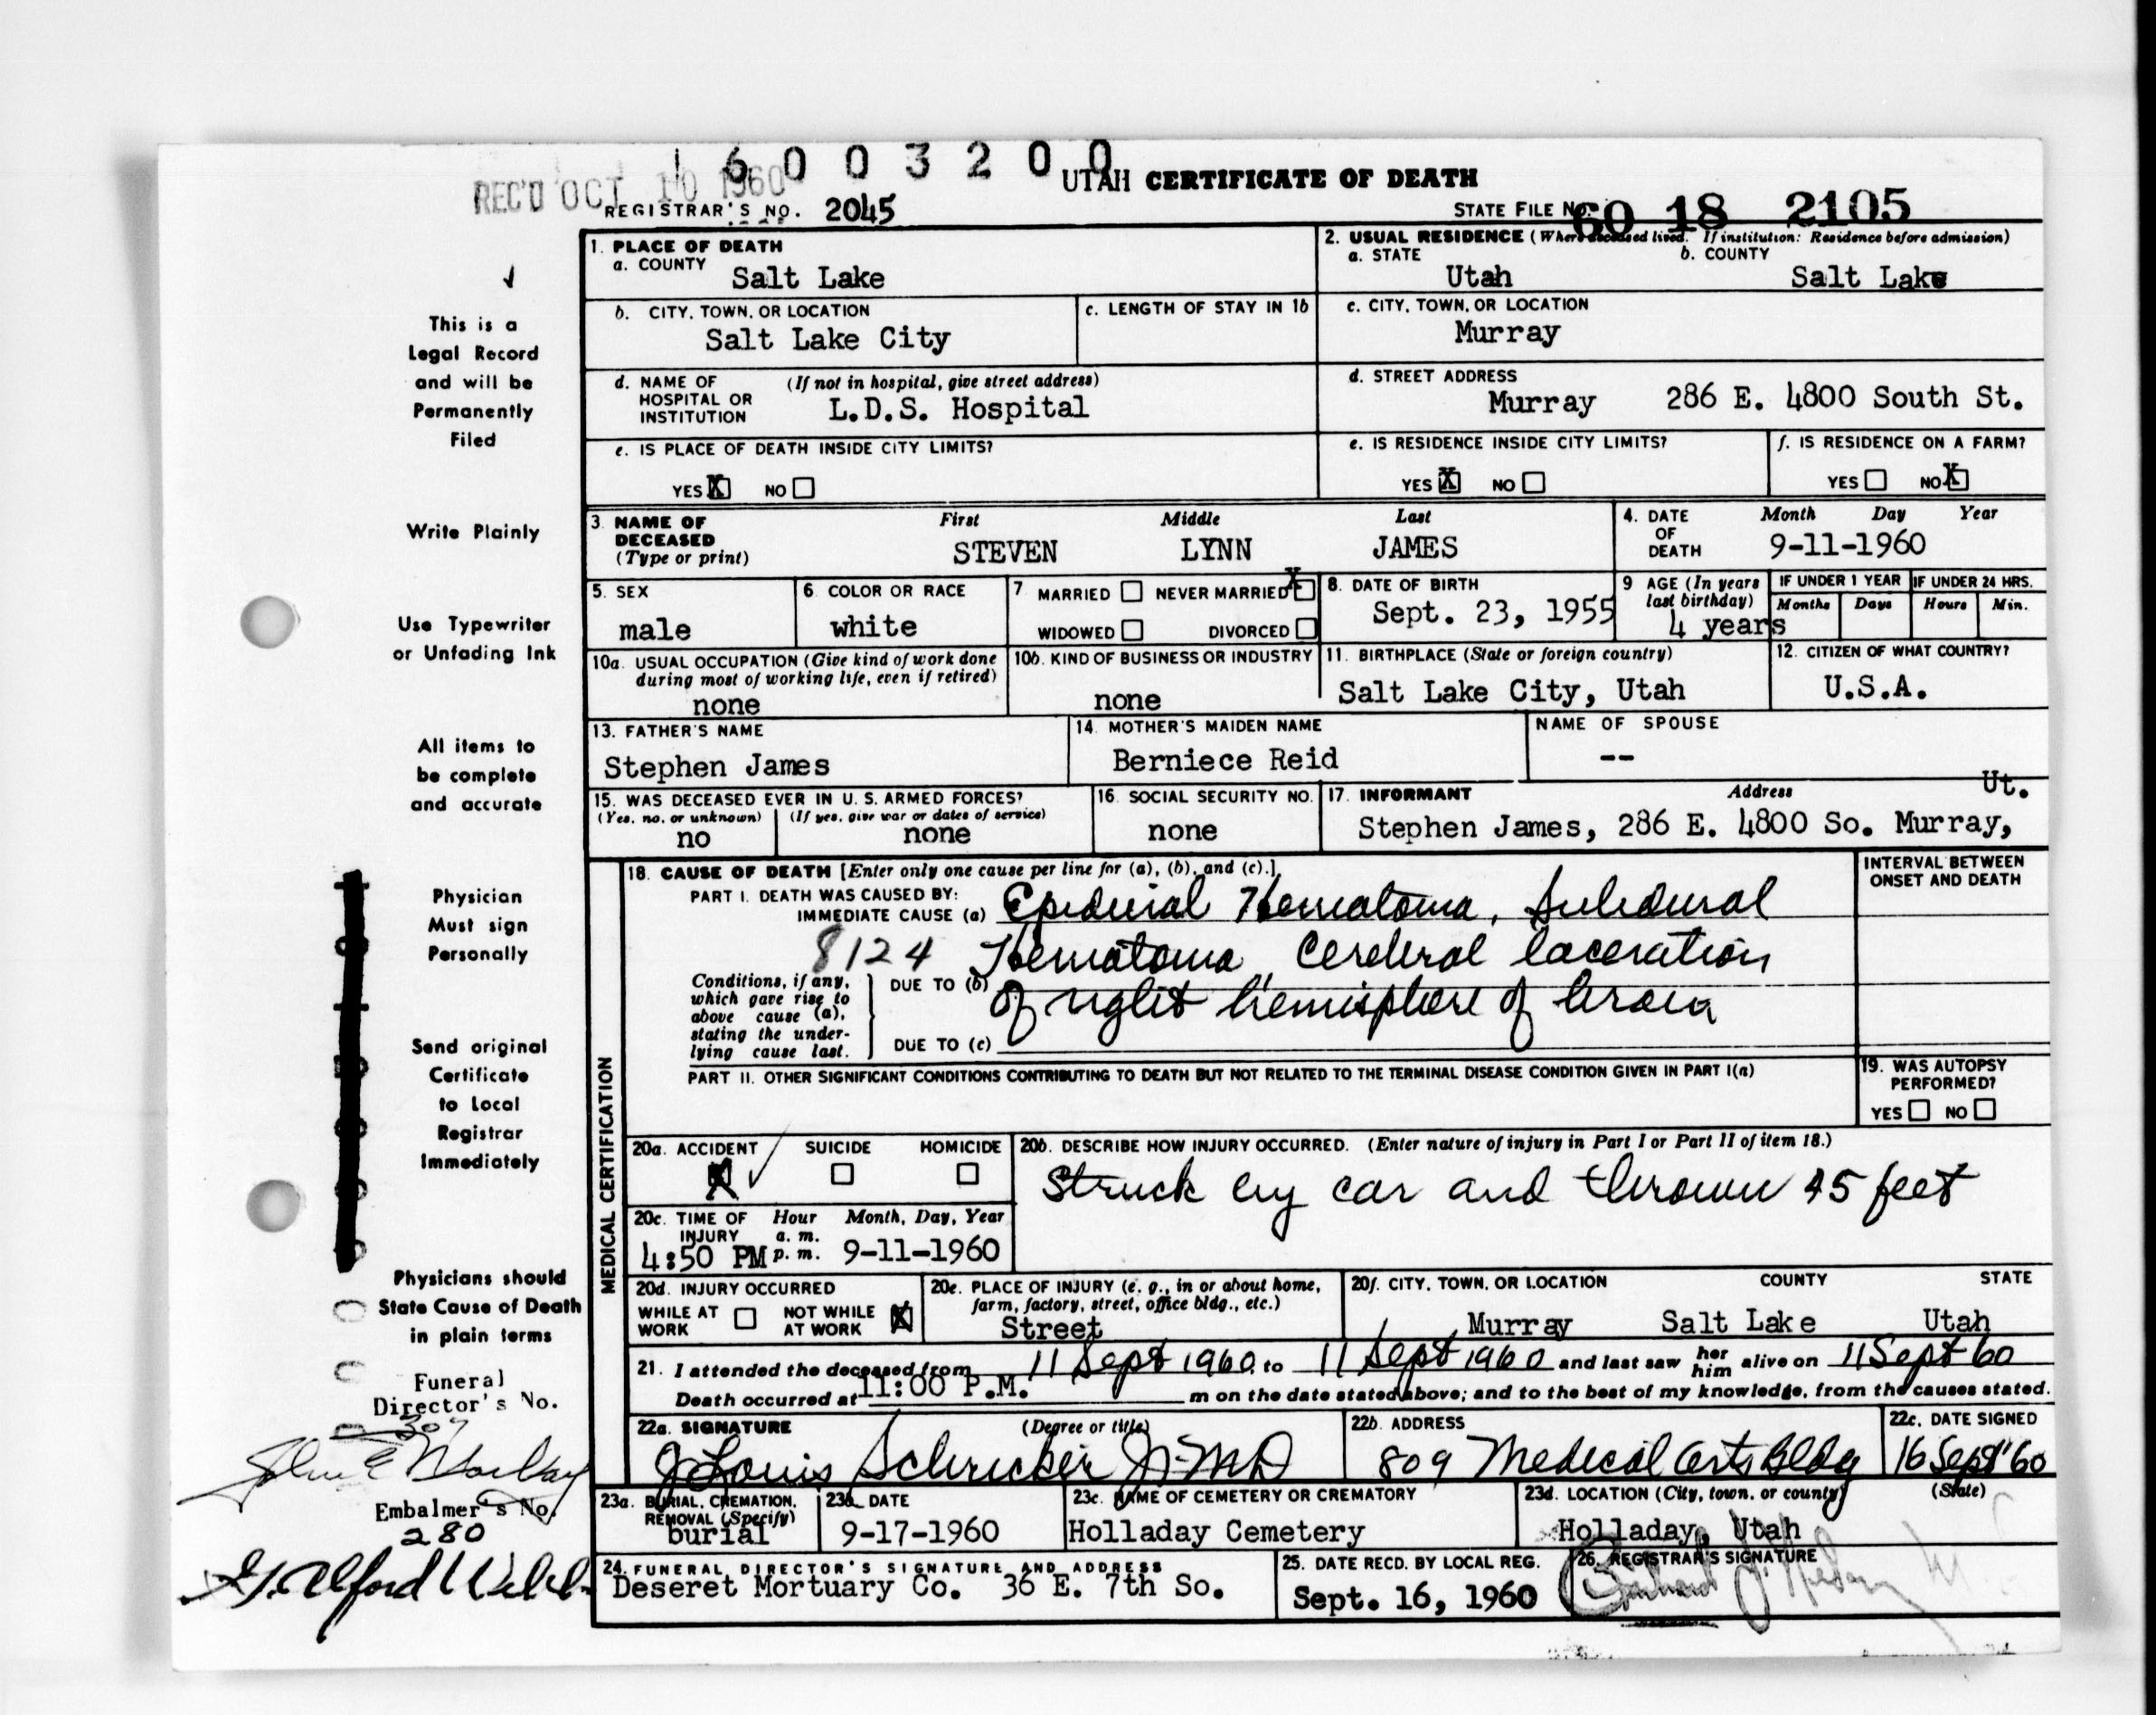 1 6 0 0 3 2 0 0
REC'D OCT 10 1960
UTAH CERTIFICATE OF DEATH
REGISTRAR'S NO. 2045
STATE FILE NO. 60 18 2105
1. PLACE OF DEATH
a. COUNTY
Salt Lake
2. USUAL RESIDENCE (Where deceased lived. If institution: Residence before admission)
a. STATE
Utah
b. COUNTY
Salt Lake
b. CITY, TOWN, OR LOCATION
Salt Lake City
c. LENGTH OF STAY IN 1b
c. CITY, TOWN, OR LOCATION
Murray
d. NAME OF HOSPITAL OR INSTITUTION
(If not in hospital, give street address)
L.D.S. Hospital
d. STREET ADDRESS
Murray 286 E. 4800 South St.
e. IS PLACE OF DEATH INSIDE CITY LIMITS?
YES X NO
e. IS RESIDENCE INSIDE CITY LIMITS?
YES X NO
f. IS RESIDENCE ON A FARM?
YES NO X
3. NAME OF DECEASED (Type or print)
First Middle Last
STEVEN LYNN JAMES
4. DATE OF DEATH
Month Day Year
9-11-1960
5. SEX
male
6. COLOR OR RACE
white
7 MARRIED NEVER MARRIED X
WIDOWED DIVORCED
8. DATE OF BIRTH
Sept. 23, 1955
9 AGE (In years last birthday)
4 years
IF UNDER 1 YEAR
Months Days
IF UNDER 24 HRS.
Hours Min.
10a. USUAL OCCUPATION (Give kind of work done during most of working life, even if retired)
none
10b. KIND OF BUSINESS OR INDUSTRY
none
11. BIRTHPLACE (State or foreign country)
Salt Lake City, Utah
12. CITIZEN OF WHAT COUNTRY?
U.S.A.
13. FATHER'S NAME
Stephen James
14. MOTHER'S MAIDEN NAME
Berniece Reid
NAME OF SPOUSE
--
15. WAS DECEASED EVER IN U. S. ARMED FORCES?
(Yes, no, or unknown) (If yes, give war or dates of service)
no none
16. SOCIAL SECURITY NO.
none
17. INFORMANT Address
Ut.
Stephen James, 286 E. 4800 So. Murray,
MEDICAL CERTIFICATION
18. CAUSE OF DEATH [Enter only one cause per line for (a), (b), and (c).]
PART I. DEATH WAS CAUSED BY:
IMMEDIATE CAUSE (a) Epidural Hematoma, Subdural
8124 Hematoma, Cerebral laceration
Conditions, if any, which gave rise to above cause (a), stating the underlying cause last.
DUE TO (b) of right hemisphere of brain
DUE TO (c)
INTERVAL BETWEEN ONSET AND DEATH
PART II. OTHER SIGNIFICANT CONDITIONS CONTRIBUTING TO DEATH BUT NOT RELATED TO THE TERMINAL DISEASE CONDITION GIVEN IN PART I(a)
19. WAS AUTOPSY PERFORMED?
YES NO
20a. ACCIDENT SUICIDE HOMICIDE
X
20b. DESCRIBE HOW INJURY OCCURRED. (Enter nature of injury in Part I or Part II of item 18.)
Struck by car and thrown 45 feet
20c. TIME OF INJURY Hour a. m. p. m. Month, Day, Year
4:50 PM 9-11-1960
20d. INJURY OCCURRED
WHILE AT WORK NOT WHILE AT WORK X
20e. PLACE OF INJURY (e. g., in or about home, farm, factory, street, office bldg., etc.)
Street
20f. CITY, TOWN, OR LOCATION COUNTY STATE
Murray Salt Lake Utah
21. I attended the deceased from 11 Sept 1960 to 11 Sept 1960 and last saw her him alive on 11 Sept 60
Death occurred at 11:00 P.M. m on the date stated above; and to the best of my knowledge, from the causes stated.
22a. SIGNATURE (Degree or title)
J Louis Schricker Jr MD
22b. ADDRESS
809 Medical Arts Bldg
22c. DATE SIGNED
16 Sept '60
23a. BURIAL, CREMATION, REMOVAL (Specify)
burial
23b. DATE
9-17-1960
23c. NAME OF CEMETERY OR CREMATORY
Holladay Cemetery
23d. LOCATION (City, town, or county) (State)
Holladay, Utah
24. FUNERAL DIRECTOR'S SIGNATURE AND ADDRESS
Deseret Mortuary Co. 36 E. 7th So.
25. DATE RECD. BY LOCAL REG.
Sept. 16, 1960
26. REGISTRAR'S SIGNATURE
This is a
Legal Record
and will be
Permanently
Filed
Write Plainly
Use Typewriter
or Unfading Ink
All items to
be complete
and accurate
Physician
Must sign
Personally
Send original
Certificate
to Local
Registrar
Immediately
Physicians should
State Cause of Death
in plain terms
Funeral
Director's No.
307
Embalmer's No.
280